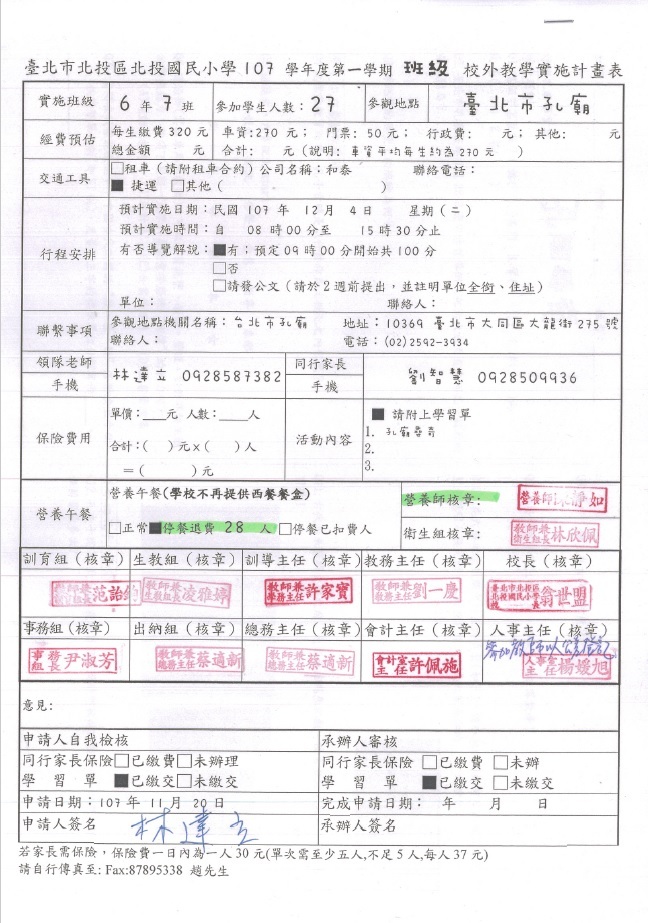 臺北市北投區北投國民小學107 學年度第一學期 班級 校外教學實施計畫表
實施班級 6 年 7 班 參加學生人數：27 參觀地點 臺北市孔廟
經費預估 每生繳費 320 元 車資:270 元； 門票: 50 元； 行政費: 元；其他: 元
總金額 元 合計: 元 (說明: 車資平均每生約為 270 元 )
交通工具 □租車（請附租車合約）公司名稱：和泰 聯絡電話：
■ 捷運 □其他（ ）
行程安排 預計實施日期：民國 107 年 12 月 4 日 星期（二）
預計實施時間：自 08 時 00 分至 15 時 30 分止
有否導覽解說：■有；預定 09 時 00 分開始共 100 分
□否
□請發公文（請於 2 週前提出，並註明單位全銜、住址）
單位： 聯絡人：
聯繫事項 參觀地點機關名稱：台北市孔廟 地址：10369 臺北市大同區大龍街 275 號
聯絡人： 電話：(02)2592-3934
領隊老師 手機 林達立 0928587382 同行家長 手機 劉智慧 0928509936
保險費用 單價：___元 人數：___人
合計：( )元 x ( )人
＝( )元
活動內容 ■ 請附上學習單
1. 孔廟尋奇
2.
3.
營養午餐 營養午餐(學校不再提供西餐餐盒)
□正常■停餐退費 28 人 □停餐已扣費人
營養師核章： 營養師陳靜如
衛生組核章： 教師兼衛生組長林欣佩
訓育組（核章） 生教組（核章） 訓導主任（核章） 教務主任（核章） 校長（核章）
教師兼生教組長凌雅婷 教師兼學務主任許家寶 教師兼教務主任劉一慶 臺北市北投區北投國民小學校長翁世盟
事務組（核章） 出納組（核章） 總務主任（核章） 會計主任（核章） 人事主任（核章）
事務組長尹淑芳 教師兼總務主任蔡適新 教師兼總務主任蔡適新 會計室主任許佩施 人事室主任楊媛旭
參加教師以公差登記
意見：
申請人自我檢核 承辦人審核
同行家長保險□已繳費□未辦理 同行家長保險 □已繳費 □未辦
學 習 單 ■已繳交□未繳交 學 習 單 ■已繳交□未繳交
申請日期：107 年 11 月 20 日 完成申請日期： 年 月 日
申請人簽名 林達立 承辦人簽名
若家長需保險，保險費一日內為一人 30 元(單次需至少五人,不足 5 人,每人 37 元)
請自行傳真至: Fax:87895338 趙先生